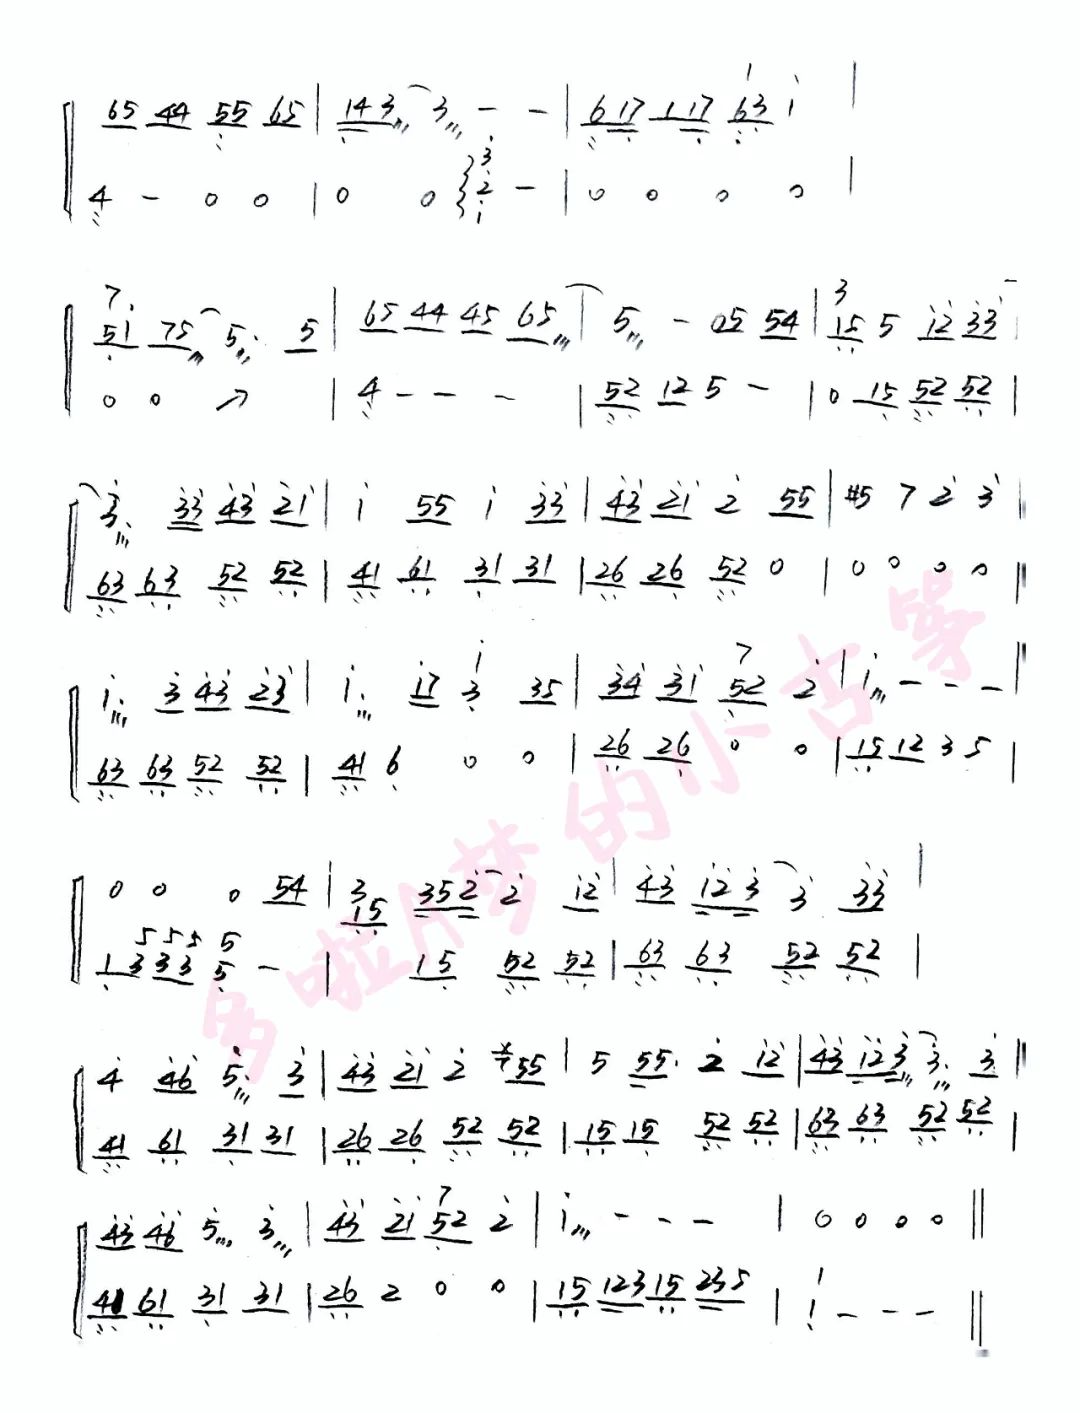 65 44 55 65 | 143 3 - - | 617 117 63 i |
4 - 0 0 | 0 0 3 2 1 - | 0 0 0 0 |
7
51 75 5. 5 | 65 44 45 65 | 5 - 05 54 | 15 5 12 33
0 0 ↗ | 4 - - - | 52 12 5 - | 0 15 52 52 |
3. 33 43 21 | i 55 i 33 | 43 21 2 55 | #5 7 2 3 |
63 63 52 52 | 41 61 31 31 | 26 26 52 0 | 0 0 0 0 ||
i. 3 43 23 | i. 17 3 35 | 34 31 52 2 | i - - - |
63 63 52 52 | 41 6 0 0 | 26 26 0 0 | 15 12 3 5 |
0 0 0 54 | 3 15 352 2 12 | 43 12 3 3 33 |
1 3 3 3 5 - | 15 52 52 | 63 63 52 52 |
4 46 5. 3 | 43 21 2 55 | 5 55. 2 12 | 43 123 3. 3 ||
41 61 31 31 | 26 26 52 52 | 15 15 52 52 | 63 63 52 52 |
43 46 5 3. | 43 21 52 2 | i - - - | 0 0 0 0 ||
41 61 31 31 | 26 2 0 0 | 15 123 15 235 | 1 - - - ||
多啦A梦的小古筝